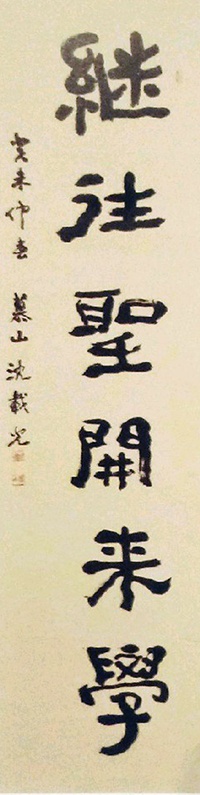 継往聖開来學
癸未仲春 慕山 沈載光